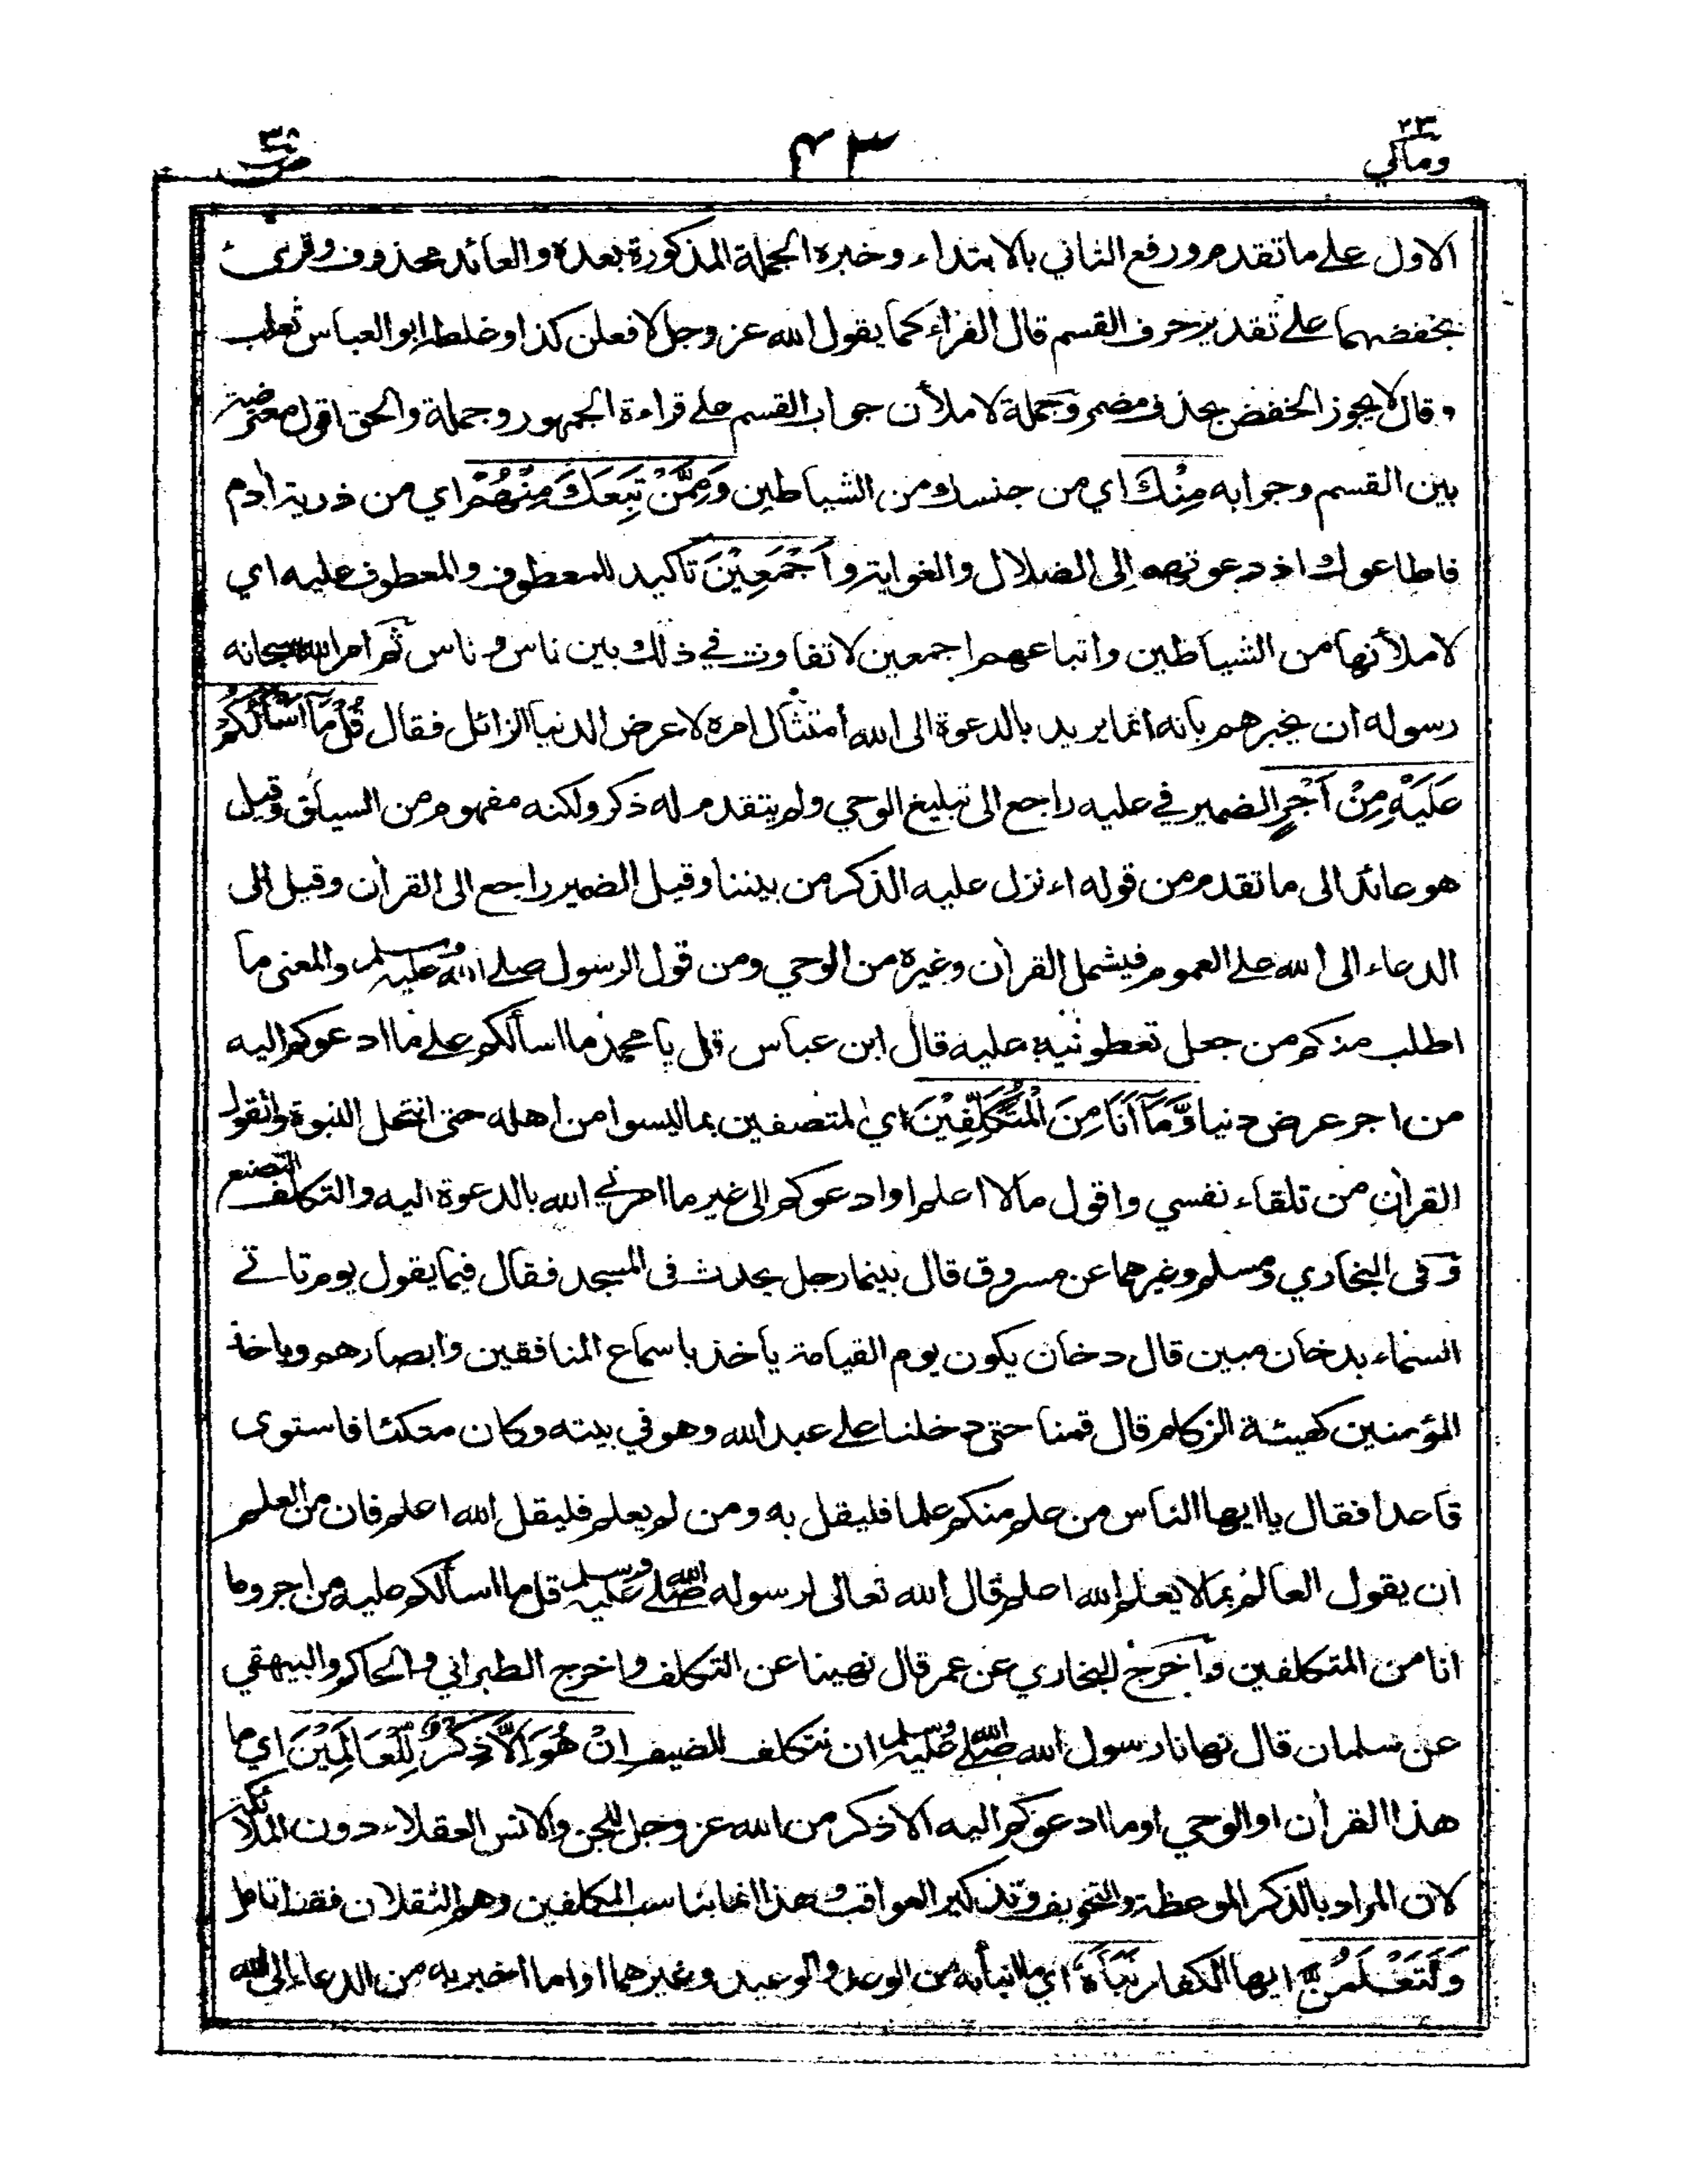 ٢٣ ومالي
٤٣
ص ٣٨
الاول على ما تقدم ورفع الثاني بالابتداء وخبره الجملة المذكورة بعده والعائد محذوف وقرئ
بخفضهما على تقدير حرف القسم قال الفراء كما يقول الله عز وجل لافعلن كذا وغلطه ابو العباس ثعلب
وقال لا يجوز الخفض بحذف مضمر وجملة لاملأن جواب القسم على قراءة الجمهور وجملة والحق اقول معترضة
بين القسم وجوابه مِنْكَ اي من جنسك من الشياطين وَمِمَّنْ تَبِعَكَ مِنْهُمْ اي من ذرية ادم
فاطاعوك اذ دعوتهم الى الضلال والغواية و اَجْمَعِيْنَ تاكيد للمعطوف والمعطوف عليه اي
لاملأنها من الشياطين واتباعهم اجمعين لا تفاوت في ذلك بين ناس وناس ثم امر الله سبحانه
رسوله ان يخبرهم بانه انما يريد بالدعوة الى الله امتثال امره لا عرض الدنيا الزائل فقال قُلْ مَآ اَسْأَلُكُمْ
عَلَيْهِ مِنْ اَجْرٍ الضمير في عليه راجع الى تبليغ الوحي ولم يتقدم له ذكر ولكنه مفهوم من السياق وقيل
هو عائد الى ما تقدم من قوله اءنزل عليه الذكر من بيننا وقيل الضمير راجع الى القرأن وقيل الى
الدعاء الى الله على العموم فيشمل القرأن وغيره من الوحي ومن قول الرسول صلى الله عليه وسلم والمعنى ما
اطلب منكم من جعل تعطونيه عليه قال ابن عباس قل يا محمد ما اسألكم على ما ادعوكم اليه
من اجر عرض دنيا وَّمَآ اَنَا مِنَ الْمُتَكَلِّفِيْنَ اي المتصفين بما ليسوا من اهله حتى انتحل النبوة واتقول
القرأن من تلقاء نفسي واقول ما لا اعلم او ادعوكم الى غير ما امرني الله بالدعوة اليه والتكلف التصنع
وفى البخاري ومسلم وغيرهما عن مسروق قال بينما رجل يحدث فى المسجد فقال فيما يقول يوم تاتي
السماء بدخان مبين قال دخان يكون يوم القيامة يأخذ باسماع المنافقين وابصارهم وياخذ
المؤمنين كهيئة الزكام قال قمنا حتى دخلنا على عبد الله وهو في بيته وكان متكئا فاستوى
قاعدا فقال يا ايها الناس من علم منكم علما فليقل به ومن لم يعلم فليقل الله اعلم فان من العلم
ان يقول العالم بما لا يعلم الله اعلم قال الله تعالى لرسوله صلى الله عليه وسلم قل ما اسألكم عليه من اجر وما
انا من المتكلفين واخرج البخاري عن عمر قال نهينا عن التكلف واخرج الطبراني والحاكم والبيهقي
عن سلمان قال نهانا رسول الله صلى الله عليه وسلم ان نتكلف للضيف اِنْ هُوَ اِلَّا ذِكْرٌ لِّلْعَالَمِيْنَ اي ما
هذا القرأن او الوحي او ما ادعوكم اليه الا ذكر من الله عز وجل للجن والانس العقلاء دون الملائكة
لان المراد بالذكر الموعظة والتخويف وتذكير العواقب وهذا انما يناسب المكلفين وهم الثقلان فقط تامل
وَلَتَعْلَمُنَّ ايها الكفار نَبَأَهُ اي ما انبأ به من الوعد والوعيد وغيرهما او ما اخبر به من الدعاء الى الله